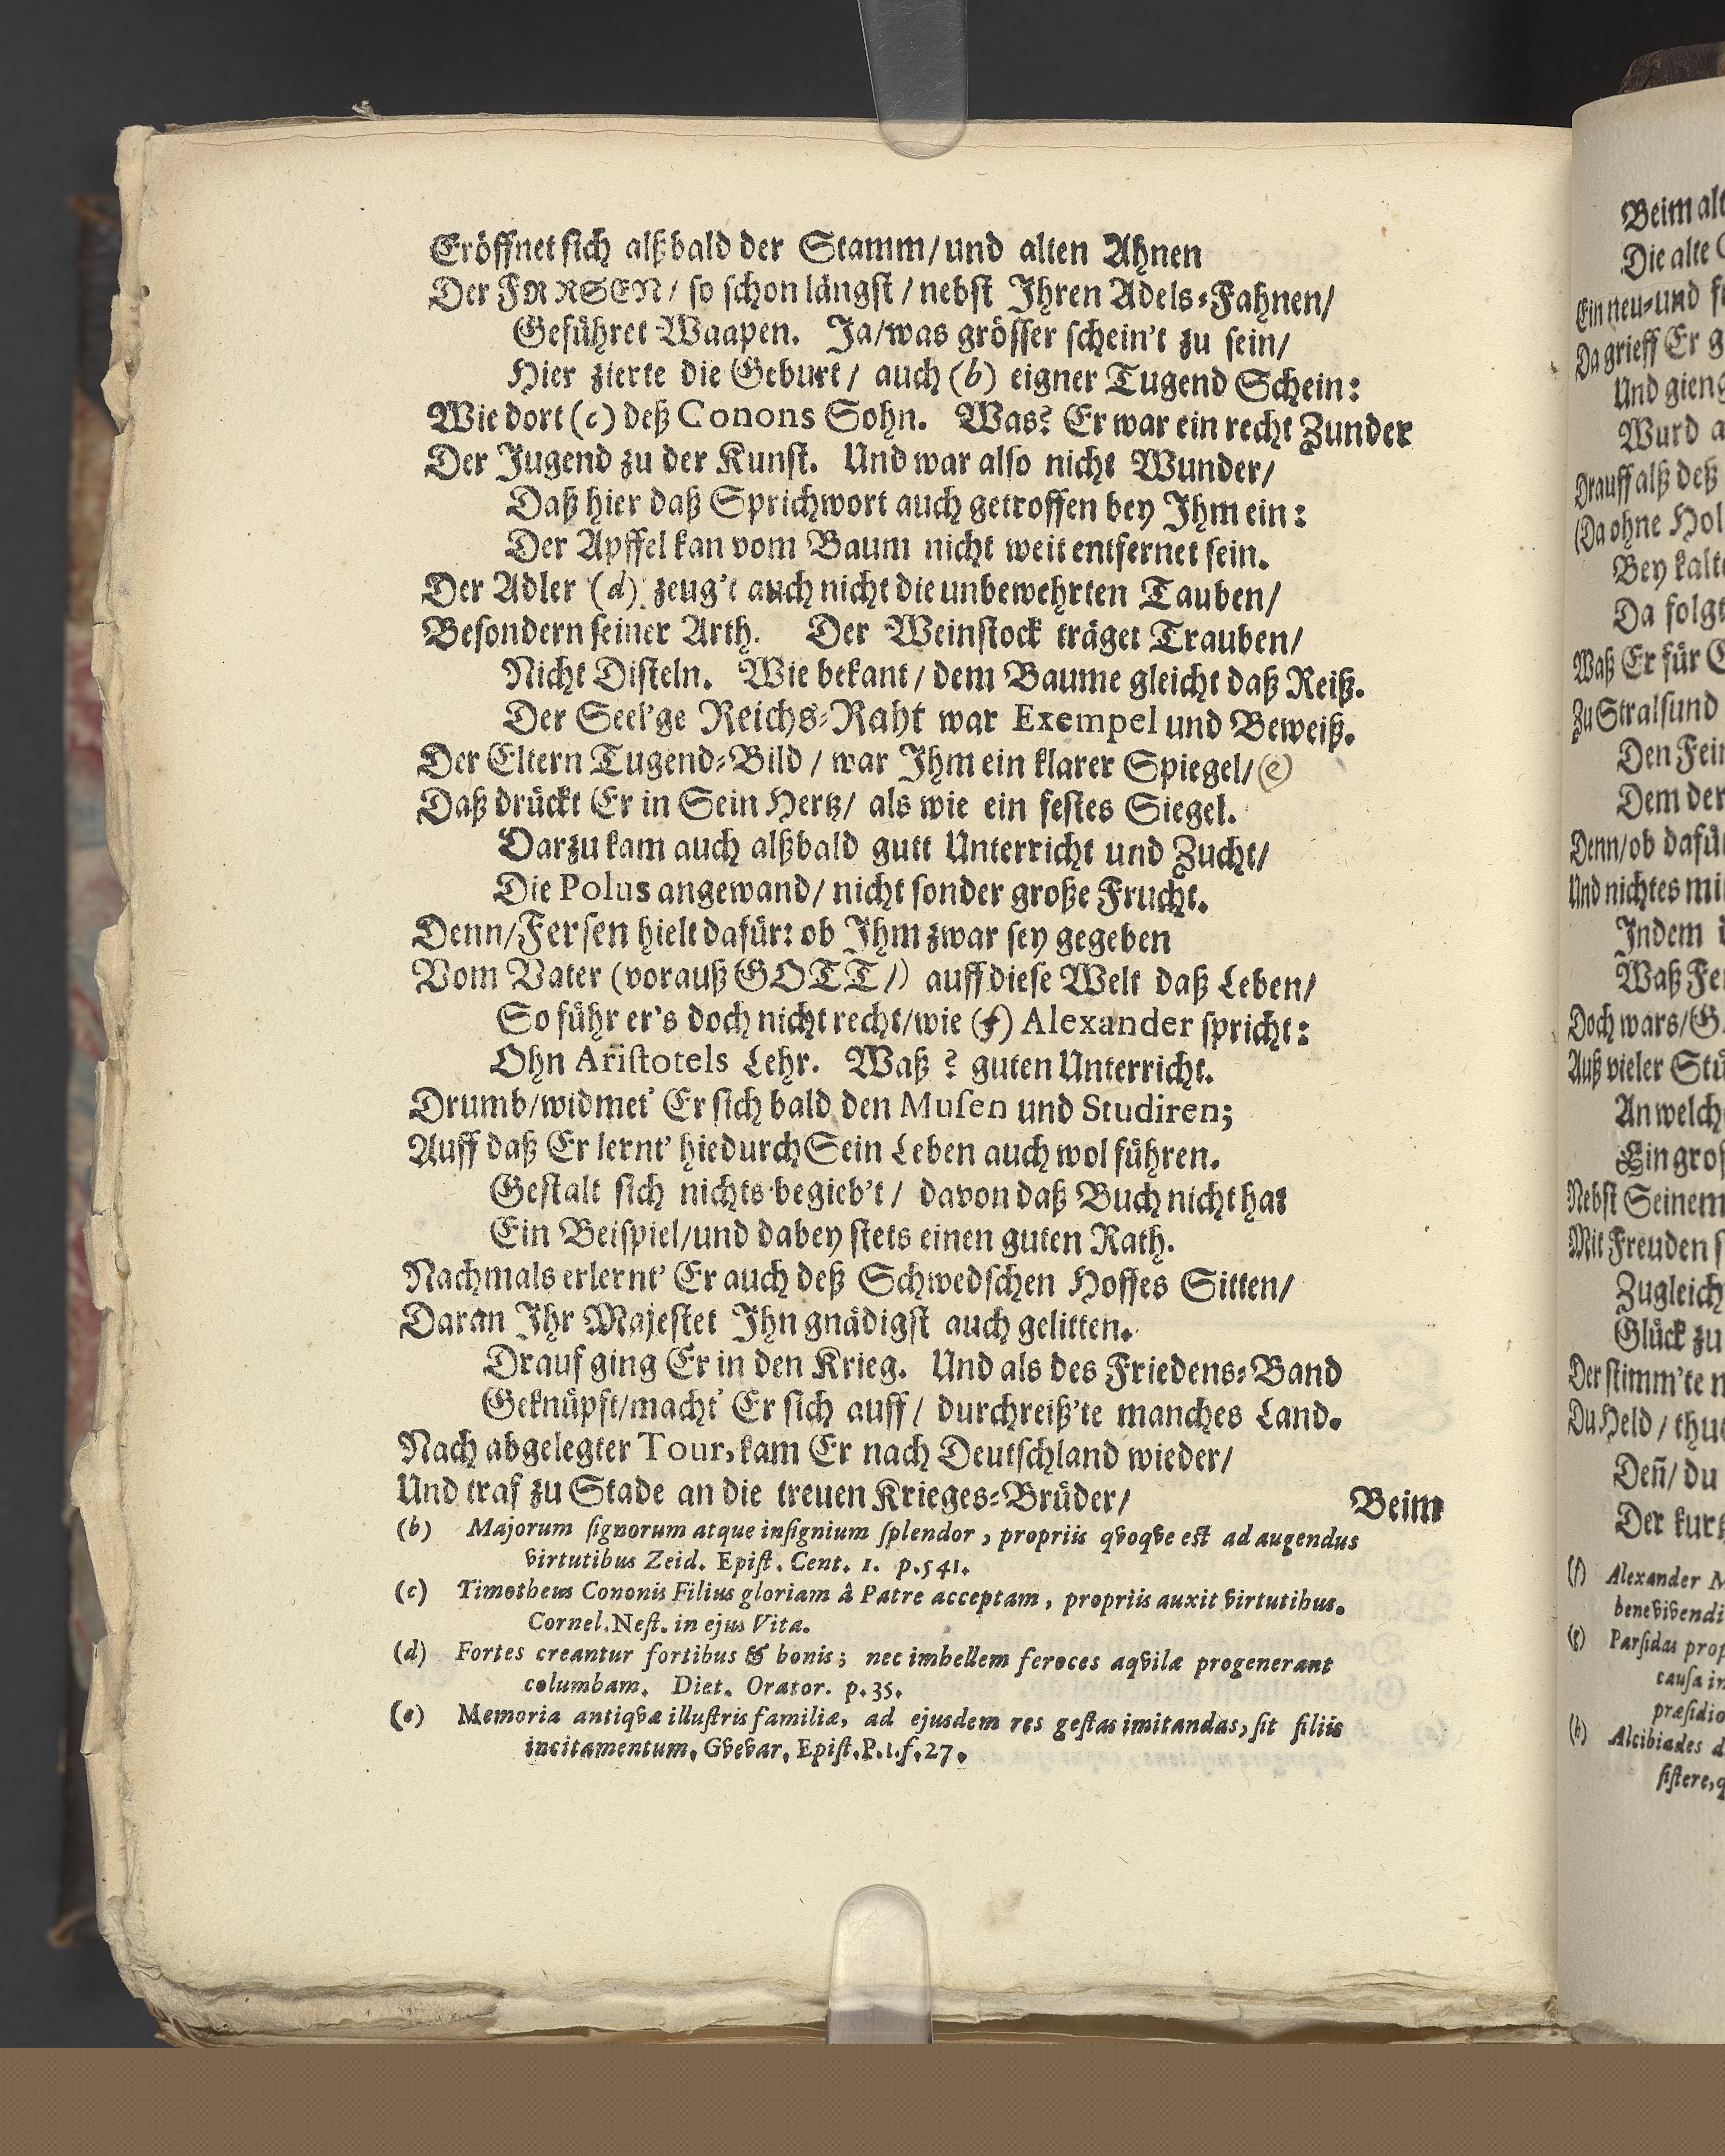 Eröffnet sich alßbald der Stamm/und alten Ahnen
Der FERSEN/ so schon längst/nebst Ihren Adels-Fahnen/
Geführet Waapen. Ja/was grösser schein't zu sein/
Hier zierte die Geburt/ auch (b) eigner Tugend Schein:
Wie dort (c) deß Conons Sohn. Was? Er war ein recht Zunder
Der Jugend zu der Kunst. Und war also nicht Wunder/
Daß hier daß Sprichwort auch getroffen bey Ihm ein:
Der Apffel kan vom Baum nicht weit entfernet sein.
Der Adler (d) zeug't auch nicht die unbewehrten Tauben/
Besondern seiner Arth. Der Weinstock träget Trauben/
Nicht Disteln. Wie bekant/ dem Baume gleicht daß Reiß.
Der Seel'ge Reichs-Raht war Exempel und Beweiß.
Der Eltern Tugend-Bild/ war Ihm ein klarer Spiegel/(e)
Daß drückt Er in Sein Hertz/ als wie ein festes Siegel.
Darzu kam auch alßbald gutt Unterricht und Zucht/
Die Polus angewand/ nicht sonder große Frucht.
Denn/Fersen hielt dafür: ob Ihm zwar sey gegeben
Vom Vater (vorauß GOTT/) auff diese Welt daß Leben/
So führ er's doch nicht recht/wie (f) Alexander spricht:
Ohn Aristotels Lehr. Waß? guten Unterricht.
Drumb/widmet' Er sich bald den Musen und Studiren;
Auff daß Er lernt' hiedurch Sein Leben auch wol führen.
Gestalt sich nichts begieb't/ davon daß Buch nicht hat
Ein Beispiel/und dabey stets einen guten Rath.
Nachmals erlernt' Er auch deß Schwedschen Hoffes Sitten/
Daran Ihr Majestet Ihn gnädigst auch gelitten.
Drauf ging Er in den Krieg. Und als des Friedens-Band
Geknüpft/macht' Er sich auff/ durchreiß'te manches Land.
Nach abgelegter Tour, kam Er nach Deutschland wieder/
Und traf zu Stade an die treuen Krieges-Brüder/
Beim
(b) Majorum signorum atque insignium splendor, propriis qvoqve est ad augendus
virtutibus Zeid. Epist. Cent. 1. p.541.
(c) Timotheus Cononis Filius gloriam â Patre acceptam, propriis auxit virtutibus.
Cornel. Nest. in ejus Vita.
(d) Fortes creantur fortibus & bonis; nec imbellem feroces aqvilæ progenerant
columbam. Diet. Orator. p. 35.
(e) Memoria antiqvæ illustris familiæ, ad ejusdem res gestas imitandas, sit filiis
incitamentum. Gvevar. Epist. P.1.f.27.
Beim alt
Die alte
Ein neu-und
Da grieff Er
Und gieng
Wurd
Drauff alß deß
(Da ohne Hol
Bey kalte
Da folgt
Waß Er für
Zu Stralsund
Den Fein
Dem der
Denn/ob dafür
Und nichtes mi
Indem
Waß Fe
Doch wars/G
Auß vieler Stü
An welch
Ein gros
Nebst Seinem
Mit Freuden
Zugleich
Glück zu
Der stimm'te
Du Held/ thu
Deñ/ du
Der kurtz
(f) Alexander M
bene vivendi
(g) Parsidas prop
causa in
præsidio
(h) Alcibiades d
sistere, q